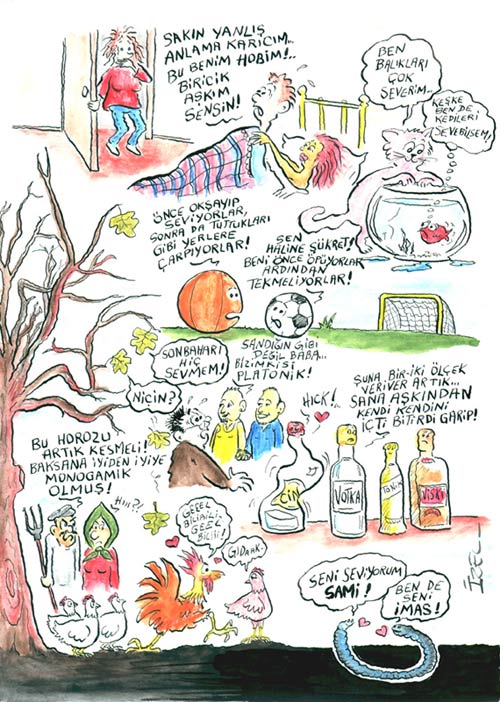 SAKIN YANLIŞ
ANLAMA KARICIM...
BU BENİM HOBİM!..
BİRİCİK
AŞKIM
SENSİN!
BEN
BALIKLARI
ÇOK
SEVERİM...
KEŞKE
BEN DE
KEDİLERİ
SEVEBİLSEM!
ÖNCE OKŞAYIP
SEVİYORLAR,
SONRA DA TUTTUKLARI
GİBİ YERLERE
ÇARPIYORLAR!
SEN
HALİNE ŞÜKRET!
BENİ ÖNCE ÖPÜYORLAR
ARDINDAN
TEKMELİYORLAR!
SONBAHARI
HİÇ
SEVMEM!
NİÇİN?
SANDIĞIN GİBİ
DEĞİL BABA...
BİZİMKİSİ
PLATONİK!
HICK!
ŞUNA BİR-İKİ ÖLÇEK
VERİVER ARTIK...
SANA AŞKINDAN
KENDİ KENDİNİ
İÇTİ BİTİRDİ GARİP!
CİN
VOTKA
TONİK
VİSKİ
BU HOROZU
ARTIK KESMELİ!
BAKSANA İYİDEN İYİYE
MONOGAMİK
OLMUŞ!
GEEL
BİLİBİLİ..
GEEL
BİLİİİ!
GIDAAK.
SENİ SEVİYORUM
SAMİ!
BEN DE
SENİ
İMAS!